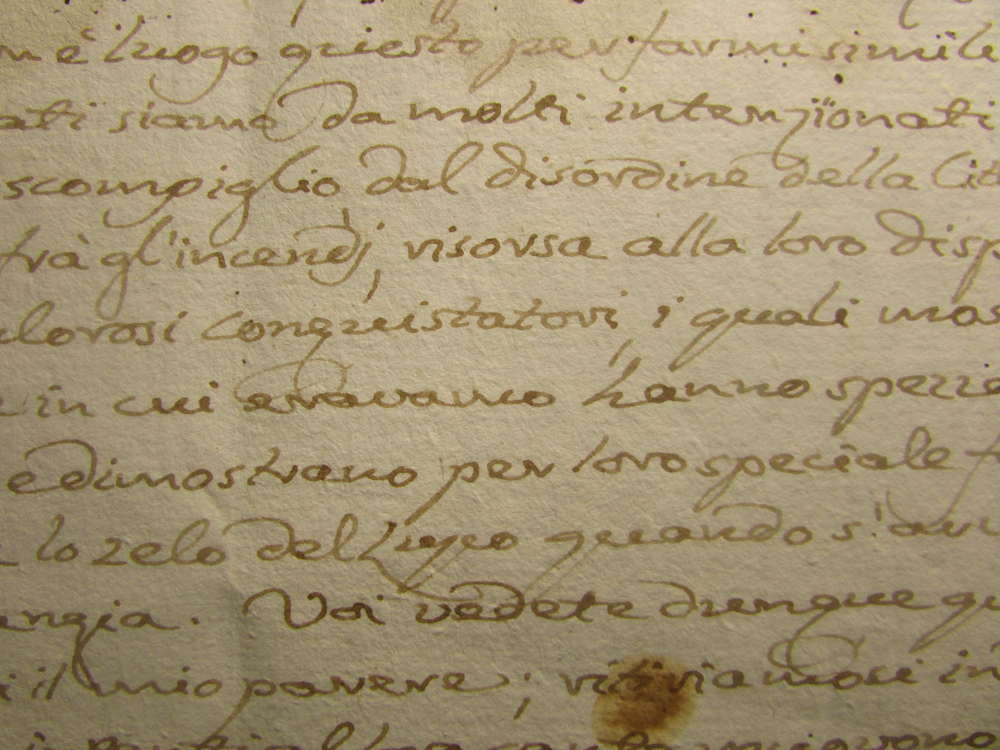 è luogo questo per farmi simile
ati siamo da molti intenzionati
scompiglio dal disordine della Cit
frà gl'incendj, risorsa alla loro disp
alorosi conquistatori, i quali mos
in cui eravamo hanno spezze
e dimostrano per loro speciale f
lo zelo del Lupo quando s'avv
angia. Voi vedete dunque qu
i il mio parere; ritiriamoci in